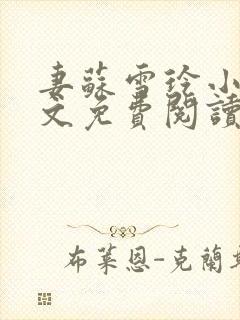 妻蘇雪玲小
文免費閱讀
布萊恩-克蘭